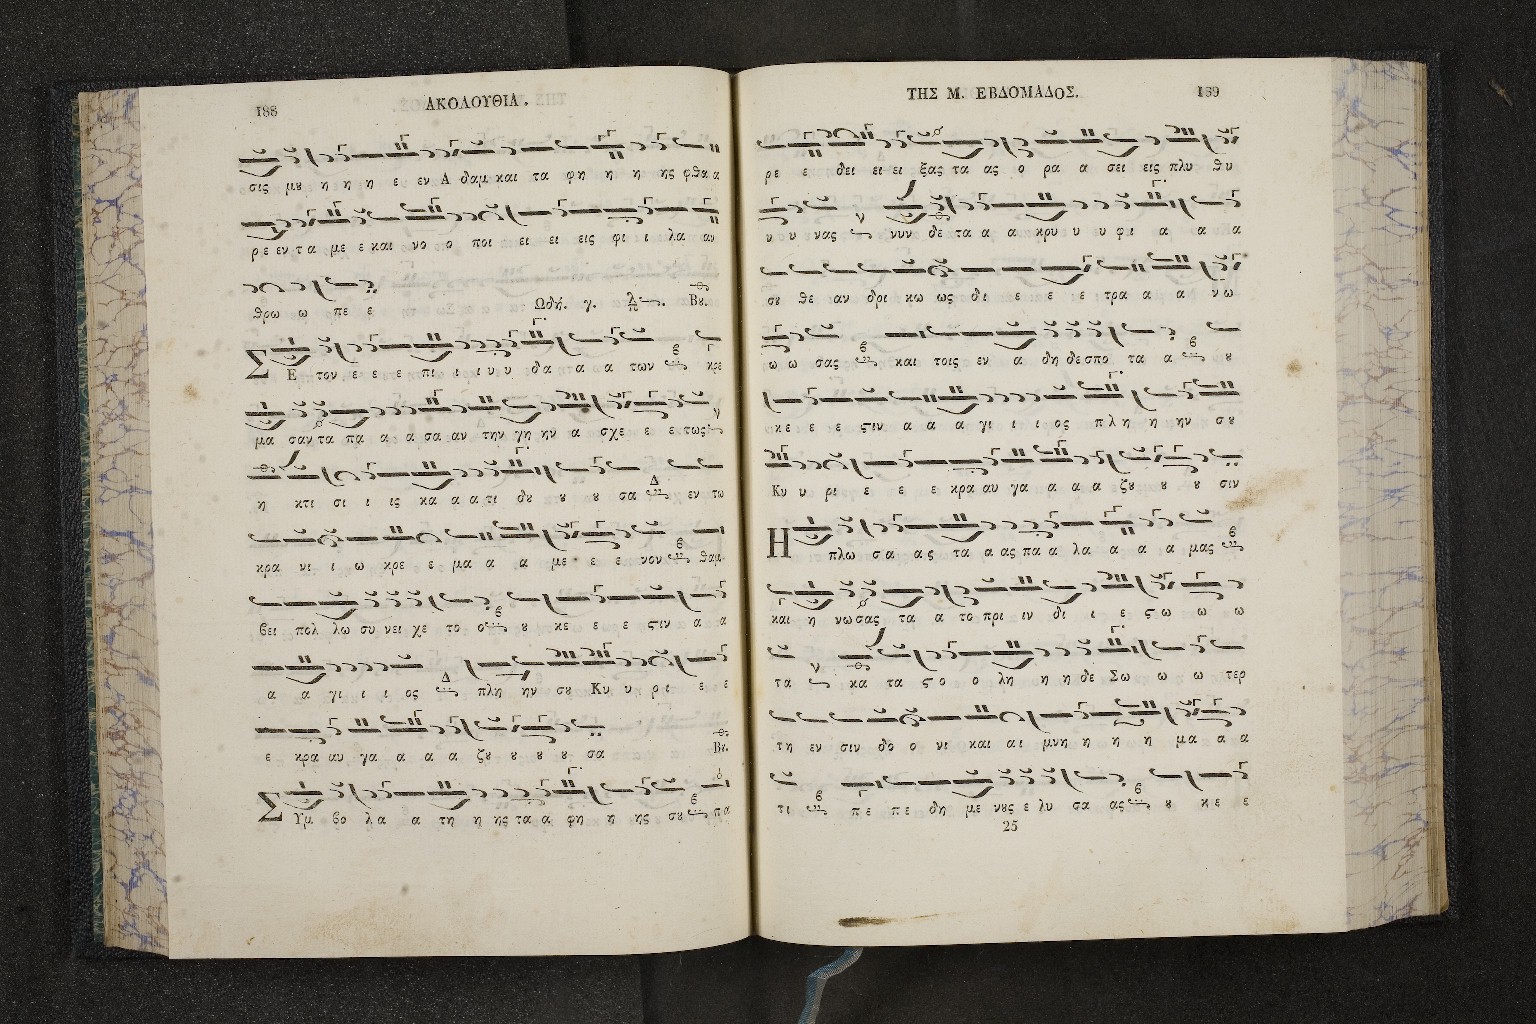 188 ΑΚΟΛΟΥΘΙΑ.
σις μȣ η η η ε εν Α δαμ και τα φη η η ης φθα α
ρε εν τα με ε και νο ο ποι ει ει εις φι ι λα αν
θρω ω πε ε Ωδή. γ. Βȣ.
ΣΕ τον ε ε ε πι ι ι υ υ δα α α των κρε
μα σαν τα πα α α σα αν την γη ην α σχε ε ε τως
η κτι σι ι ις κα α α τι δȣ ȣ ȣ σα εν τω
κρα νι ι ω κρε ε μα α α με ε ε νον θαμ
βει πολ λω συ νει χε το ο ȣ κε ε ε ςιν α α
α α γι ι ι ος πλη ην σȣ Κυ υ ρι ε ε
ε κρα αυ γα α α α ζȣ ȣ ȣ ȣ σα Βȣ.
ΣΥμ βο λα α τη η ης τα α φη η ης σȣ πα
ΤΗΣ Μ. ΕΒΔΟΜΑΔΟΣ. 189
ρε ε δει ει ει ξας τα ας ο ρα α σει εις πλυ θυ
υ υ νας νυν δε τα α α κρυ υ υ φι α α α
σȣ θε αν δρι κω ως δι ε ε ε τρα α α νω
ω ω σας και τοις εν α δη δεσπο τα α ȣ
κε ε ε ςιν α α α γι ι ι ος πλη η ην σȣ
Κυ υ ρι ε ε ε κρα αυ γα α α α ζȣ ȣ ȣ σιν
Η πλω σα ας τα α ας πα α λα α α α μας
και η νωσας τα α το πρι ιν δι ι ε ςω ω ω
τα κα τα ςο ο λη η η δε Σω ω ω τερ
τη εν σιν δο ο νι και αι μνη η η η μα α α
τι πε πε δη με νȣς ε λυ σα ας ȣ κε ε
25